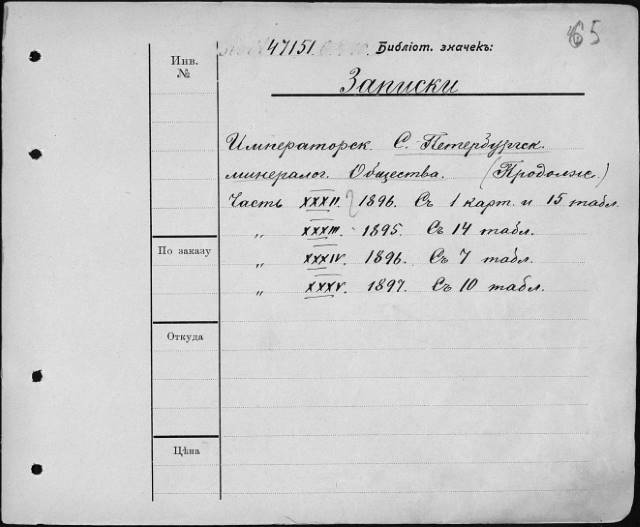 65
47151 Библіот. значекъ:
Инв.
№
Записки
Императорск. С. Петербургск.
минералог. Общества. (Продолж.)
Часть XXXII. 1896. Съ 1 карт. и 15 табл.
„ XXXIII. 1895. Съ 14 табл.
По заказу
„ XXXIV. 1896. Съ 7 табл.
„ XXXV. 1897. Съ 10 табл.
Откуда
Цѣна